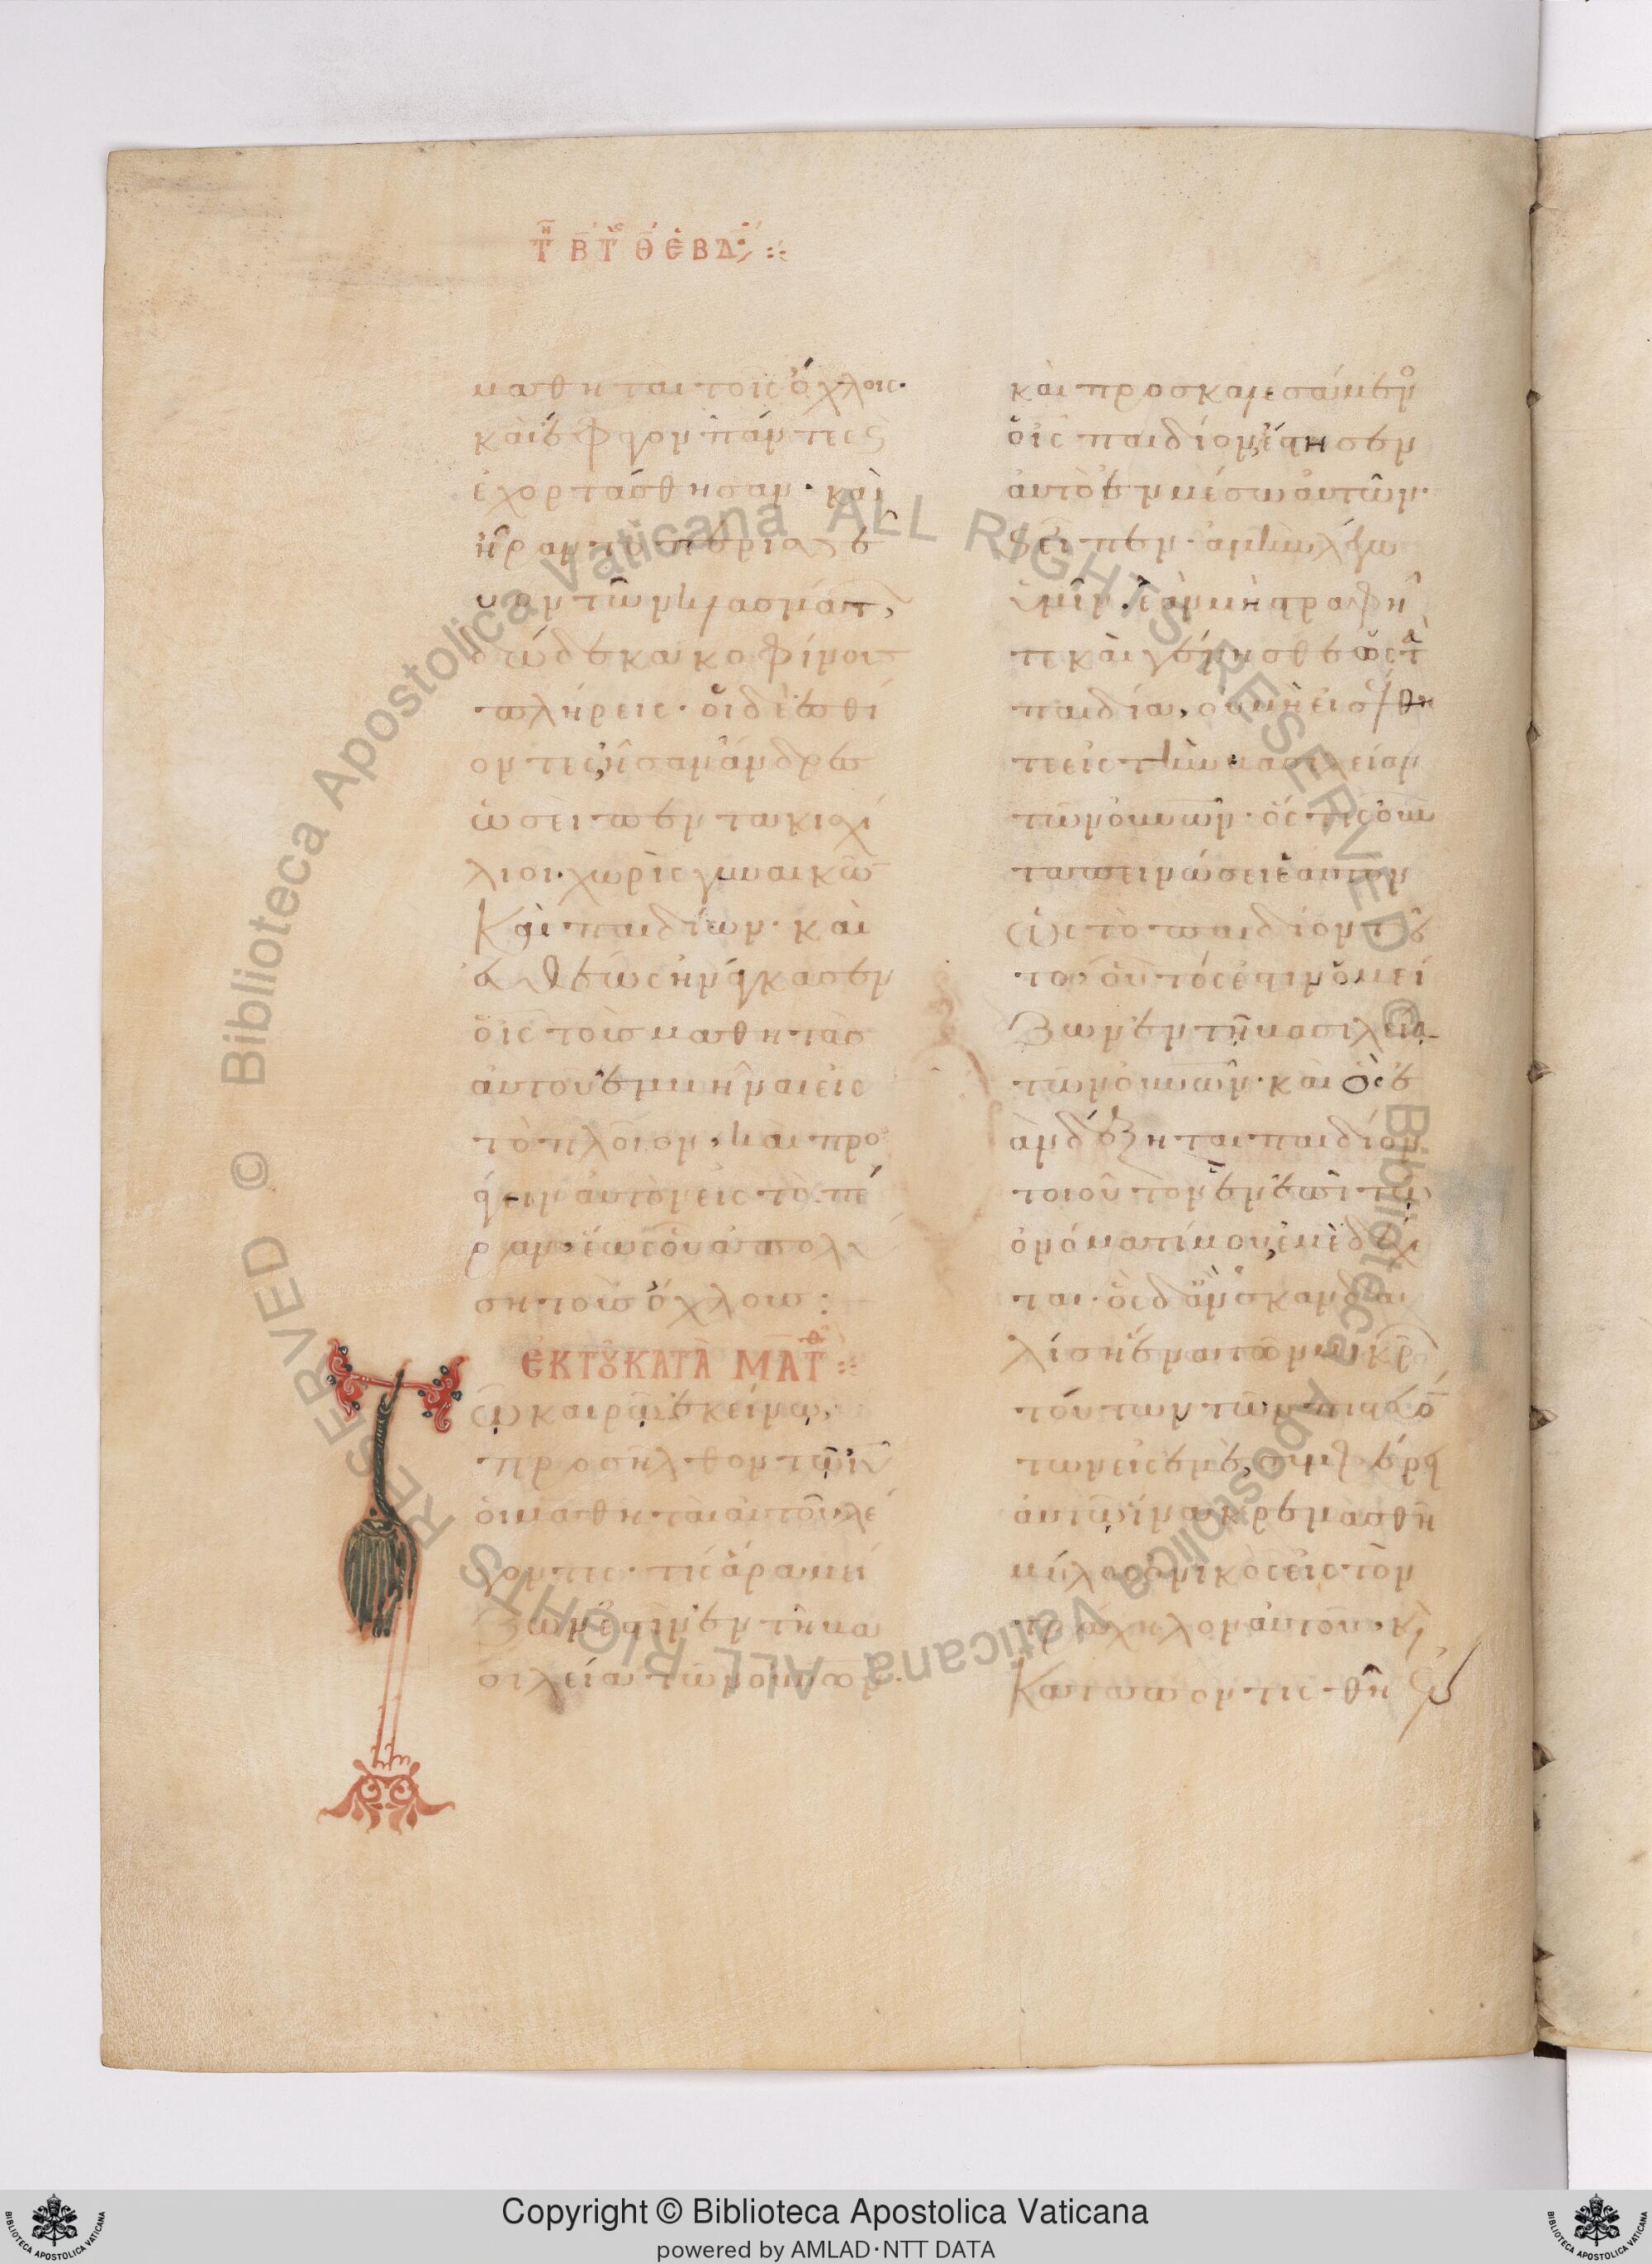 Τῇ Β Τῆς Θ ἙΒΔ
μαθηταὶ τοῖς ὄχλοις·
καὶ ἔφαγον πάντες
ἐχορτάσθησαν· καὶ
ἦραν τὸ περισσε
υον τῶν κλασμάτ,
δώδεκα κοφίνους
πλήρεις· οἱ δὲ ἐσθί
οντες, ἦσαν ἄνδρες
ὡσεὶ πεντακισχί
λιοι· χωρὶς γυναικῶ
Καὶ παιδίων· καὶ
εὐθέως ἠνάγκασεν
ὁ ις τοὺς μαθητὰς
αὐτοῦ ἐμβῆναι εἰς
τὸ πλοῖον, καὶ προ
άγειν αὐτὸν εἰς τὸ πέ
ραν, ἕως οὗ ἀπολύ
ση τοὺς ὄχλους:
ἘΚ ΤΟΥ ΚΑΤΑ ΜΑΤΘ
Τῷ καιρῷ ἐκείνω,
προσῆλθον τῷ ιυ
οἱ μαθηταὶ αὐτοῦ λέ
γοντες· τίς ἄρα μεί
ζων ἐστὶν ἐν τῆ βα
σιλεία τῶν οὐνῶν·
καὶ προσκαλεσάμενο
ὁ ις παιδίον, ἔστησεν
αὐτὸ ἐν μέσω αὐτῶν·
καὶ εἶπεν· ἀμὴν λέγω
ὑμῖν· ἐὰν μὴ στραφῆ
τε καὶ γένησθε ὡς τὰ
παιδία, οὐ μὴ εἰσέλθη
τε εἰς τὴν βασιλείαν
τῶν οὐνῶν· ὅστις οὖν
ταπεινώσει ἑαυτὸν
Ὡς τὸ παιδίον τοῦ
το, οὗτός ἐστιν ὁ μεί
ζων ἐν τῆ βασιλεία
τῶν οὐνῶν· καὶ ὃς ἐ
ὰν δέξηται παιδίον
τοιοῦτον ἓν ἐπὶ τῷ
ὀνόματί μου, ἐμὲ δέχε
ται· ὃς δ' ἂν σκανδα
λίση ἕνα τῶν μικρῶ
τούτων τῶν πιστευό
των εἰς ἐμὲ, συμφέρει
αὐτῷ ἵνα κρεμασθῆ
μύλος ὀνικὸς εἰς τὸν
τράχηλον αὐτοῦ, κ
Καταποντισθῆ ἐν
Copyright © Biblioteca Apostolica Vaticana
powered by AMLAD·NTT DATA